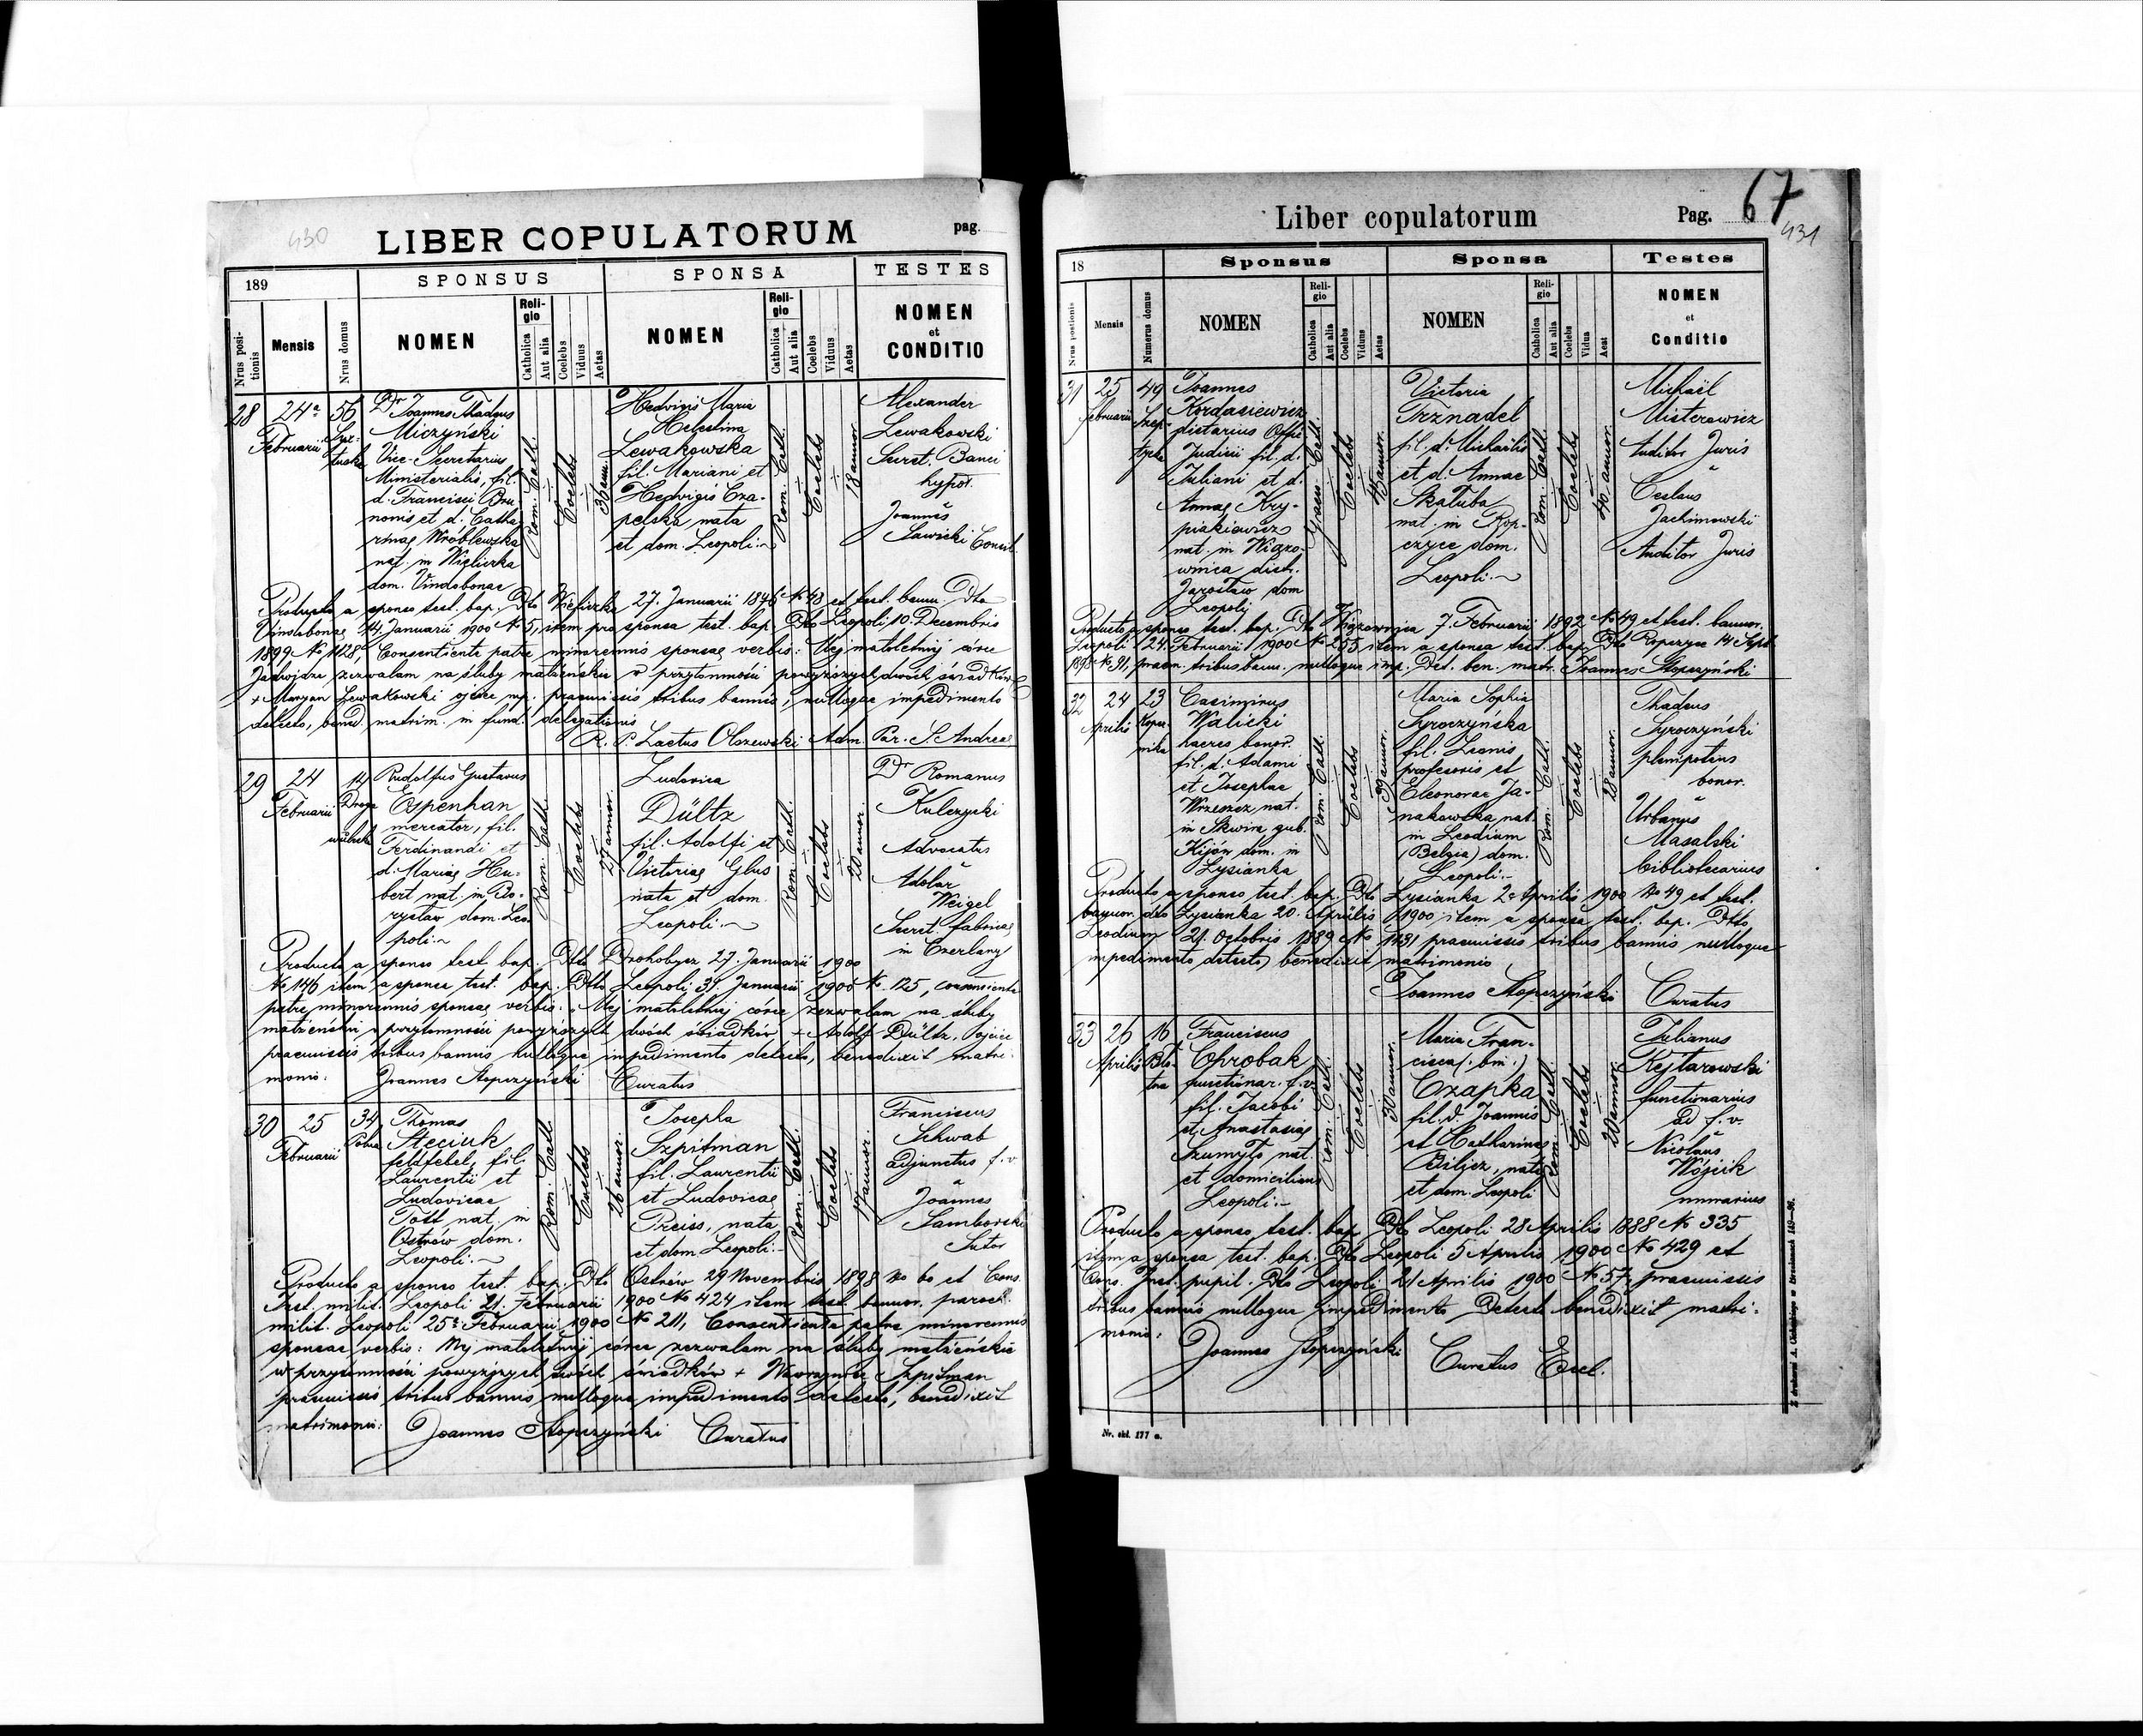 430
LIBER COPULATORUM
pag.
189
SPONSUS
SPONSA
TESTES
Nrus positionis
Mensis
Nrus domus
NOMEN
Religio
Catholica
Aut alia
Coelebs
Viduus
Aetas
NOMEN
Religio
Catholica
Aut alia
Coelebs
Viduus
Aetas
NOMEN
et
CONDITIO
28
24a
Februarii
56
Dr Joannes Thadeus
Miczyński
Vice-Secretarius
Ministerialis, fil.
d. Francisci Bru-
nonis et d. Catha
rinae Wróblewska
nat. in Wieliczka
dom. Vindobonae
Rom. Cath.
Coelebs
Hedvigis Maria
Helestina
Lewakowska
fil. Mariani et
Hedvigis Cza-
pelska nata
et dom. Leopoli
Rom. Cath.
Coelebs
18 annor.
Alexander
Lewakowski
Secret. Banci
hypot.
Joannes
Sawicki Consil.
Producto a sponso test. bap. Dto Wieliczka 27. Januarii No 48 et test. bann. Dto
Vindobonae 14. Januarii 1900 No 5, item pro sponsa test. bap. Dto Leopoli 10. Decembris
1899 No 1128, Consentiente patre minorennis sponsae verbis: Mej małoletniej córce
Jadwidze zezwalam na śluby małżeńskie w przytomności powyższych dwóch świadków
+ Maryan Lewakowski ojciec mp. praemissis tribus bannis, nulloque impedimento
detecto, bened. matrim. in fund. delegationis
R. P. Laetus Olszewski Adm. Par. S. Andreae
29
24
Februarii
14
Droga
wulecka
Rudolfus Gustavus
Espenhan
mercator, fil.
Ferdinandi et
d. Mariae Hu-
bert nat. in Bo-
rysław dom. Leo-
poli
Rom. Cath.
Coelebs
27 annor.
Ludovica
Dültz
fil. Adolfi et
Victoriae Glus
nata et dom.
Leopoli
Rom. Cath.
Coelebs
20 annor.
Dr Romanus
Kulczycki
Advocatus
Adolar
Weigel
Secret. fabricae
in Czerlany
Producto a sponso test bap. Dto Drohobycz 27. Januarii 1900
No 146 item a sponsa test. bap. Dto Leopoli 31. Januarii 1900 No 125, consentiente
patre minorennis sponsae verbis: Mej małoletniej córce zezwalam na śluby
małżeńskie w przytomności powyższych dwóch świadków + Adolf Dültz, Ojciec
praemissis tribus bannis nulloque impedimento detecto, benedixit matri-
monio: Joannes Stopczyński Curatus
30
25
Februarii
34
Polna
Thomas
Steciuk
feldfebel, fil.
Laurentii et
Ludovicae
Tott, nat. in
Ostrów dom.
Leopoli
Rom. Cath.
Coelebs
26 annor.
Josepha
Szpitman
fil. Laurentii
et Ludovicae
Preiss, nata
et dom. Leopoli
Rom. Cath.
Coelebs
17 annor.
Franciscus
Schwab
adjunctus f. v.
Joannes
Samborski
Sutor
Producto a sponso test. bap. Dto Ostrów 29 Novembris 1898 No 60 et Cons.
Inst. milit. Leopoli 21. Februarii 1900 No 424 item test. bannor. paroch.
milit. Leopoli 25. Februarii 1900 No 211, Consentiente patre minorennis
sponsae verbis: Mej małoletniej córce zezwalam na śluby małżeńskie
w przytomności powyższych dwóch świadków + Wawrzyniec Szpitman
praemissis tribus bannis nulloque impedimento detecto, benedixit
matrimonio: Joannes Stopczyński Curatus
Liber copulatorum
Pag. 67
431
18
Sponsus
Sponsa
Testes
Nrus positionis
Mensis
Numerus domus
NOMEN
Religio
Catholica
Aut alia
Coelebs
Viduus
Aetas
NOMEN
Religio
Catholica
Aut alia
Coelebs
Vidua
Aeat
NOMEN
et
Conditio
31
25
Februarii
49
Szep-
tycka
Joannes
Kordasiewicz
dietarius Offic.
Judicii fil. d.
Juliani et d.
Annae Kry-
piakiewicz
nat. in Wiązo-
wnica distr.
Jarosław dom
Leopoli
Coelebs
Victoria
Trznadel
fil. d. Michaelis
et d. Annae
Skałuba
nat. in Rop-
czyce dom.
Leopoli
Rom. Cath.
Coelebs
40 annor.
Michaël
Misterowicz
Auditor Juris
Ceslaus
Jachimowski
Auditor Juris
Producto a sponso test. bap. Dto Wiązownica 7. Februarii 1892 No 49 et test. bannor.
Leopoli 24. Februarii 1900 No 255 item a sponsa test. bap. Dto Ropczyce 14 Sept.
No 91, praem. tribus bann. nulloque imp. Det. ben. matr. Joannes Stopczyński
32
24
Aprilis
23
Koper-
nika
Casimirus
Walicki
haeres bonor.
fil. d. Adami
et Josephae
Wrzeszcz nat.
in Skwira gub.
Kijów dom. in
Lysianka
Rom. Cath.
Coelebs
39 annor.
Maria Sophia
Syroczyńska
fil. Leonis
profesoris et
Eleonorae Ja-
nakowska nat.
in Leodium
(Belgia) dom.
Leopoli
Rom. Cath.
Coelebs
28 annor.
Thadeus
Syroczyński
plenipotens
bonor.
Urbanus
Masalski
bibliotecarius
Producto a sponso test. bap. Dto Lysianka 2 Aprilis 1900 No 49 et test.
bannor. dto Lysianka 20. Aprilis 1900 item a sponsa test. bap. Dtto
Leodium 21. Octobris 1889 No 1431 praemissis tribus bannis nulloque
impedimento detecto benedixit matrimonio
Joannes Stopczyński Curatus
33
26
Aprilis
16
Franciscus
Chrobak
functionar. f. v.
fil. Jacobi
et Anastasiae
Szumyło nat.
et domiciliens
Leopoli
Rom. Cath.
Coelebs
30 annor.
Maria Fran-
cisca (: bin :)
Czapka
fil. d. Joannis
et Catharinae
Biljez, nata
et dom. Leopoli
Rom. Cath.
Coelebs
20 annor.
Julianus
Kejtarowski
functionarius
ad f. v.
Nicolaus
Wójcik
murarius
Producto a sponso test. bap. Dto Leopoli 28 Aprilis 1888 No 335
item a sponsa test. bap. Dto Leopoli 5 Aprilis 1900 No 429 et
Cons. Inst. pupil. Dto Leopoli 21 Aprilis 1900 No 57, praemissis
tribus bannis nulloque impedimento Detecto benedixit matri-
monio:
Joannes Stopczyński Curatus Eccl.
Nr. skł. 177 a.